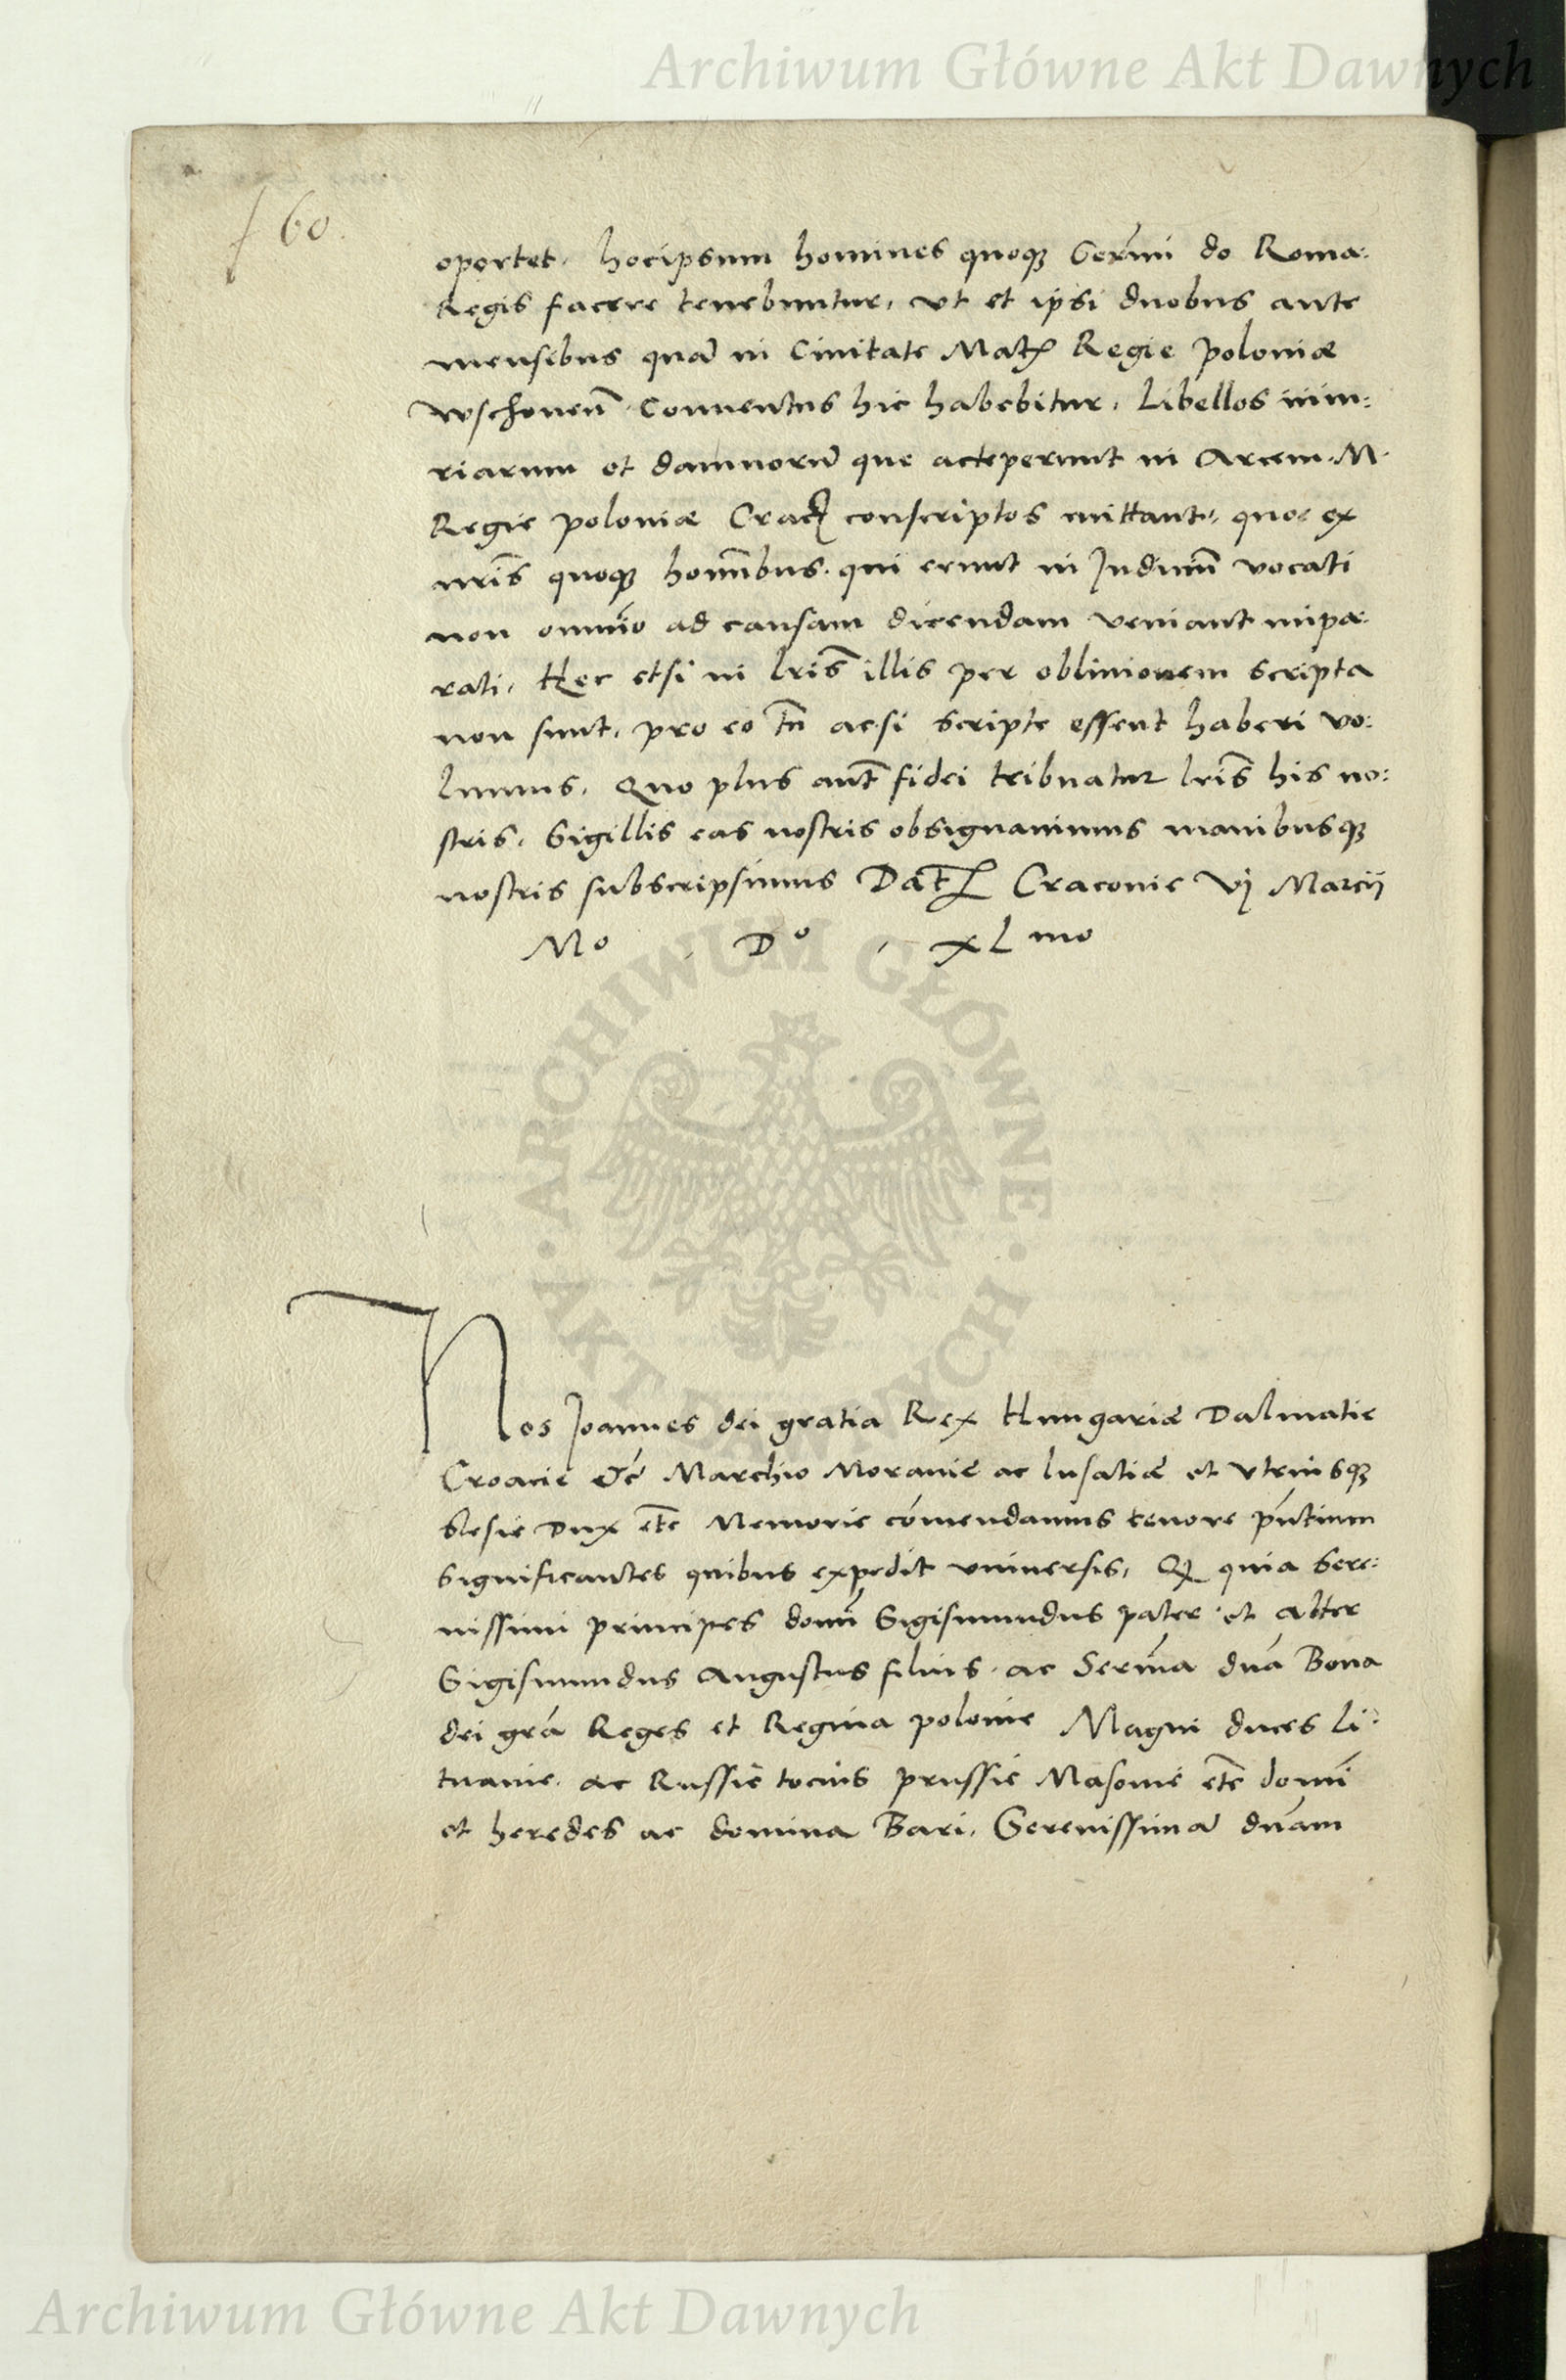 Archiwum Główne Akt Dawnych
f 60.
oportet. hocipsum homines quoqꝫ Serm̃i do Roma:
Regis facere tenebuntur, vt et ipsi duobus ante
mensibus quã in Ciuitate Matꝭ Regie poloniæ
wschouen̄ Conuentus hic habebitur, Libellos iniu:
riarum et damnorũ que acceperunt in Arcem. M.
Regie poloniæ Crac̄ conscriptos mittant, quo ex
nr̄is quoqꝫ hom̄ibus. qui erunt in Judiciū vocati
non omnĩo ad causam dicendam veniant impa:
rati, Hec etsi in lr̄is illis per obliuionem scripta
non sunt, pro eo tn̄ acsi scripte essent haberi vo:
lumus. Quo plus aut̄ fidei tribuatur lr̄is his no:
stris, Sigillis eas nostris obsignauimus manibusqꝫ
nostris subscripsimus Dat̄ Craconie vj Marcij
Mo . Do . XLmo
ARCHIWUM GŁÓWNE · AKT DAWNYCH ·
Nos Joannes dei gratia Rex Hungariæ Dalmatie
Croacie &c̃ Marchio Morauie ac lusatiæ et vtriusqꝫ
slesie Dux etc̄ Memorie cõmendamus tenore pñtium
significantes quibus expedit vniuersis, Qꝫ quia Sere:
nissimi principes domi̅ Sigismundus pater et alter
Sigismundus Augustus filius. ac Serm̃a dnã Bona
dei grã Reges et Regina polonie Magni duces Li:
tuanie. ac Russie tocius prussie Masouie etc̄ domi̅
et heredes ac domina Bari, Serenissimã dnãm
Archiwum Główne Akt Dawnych